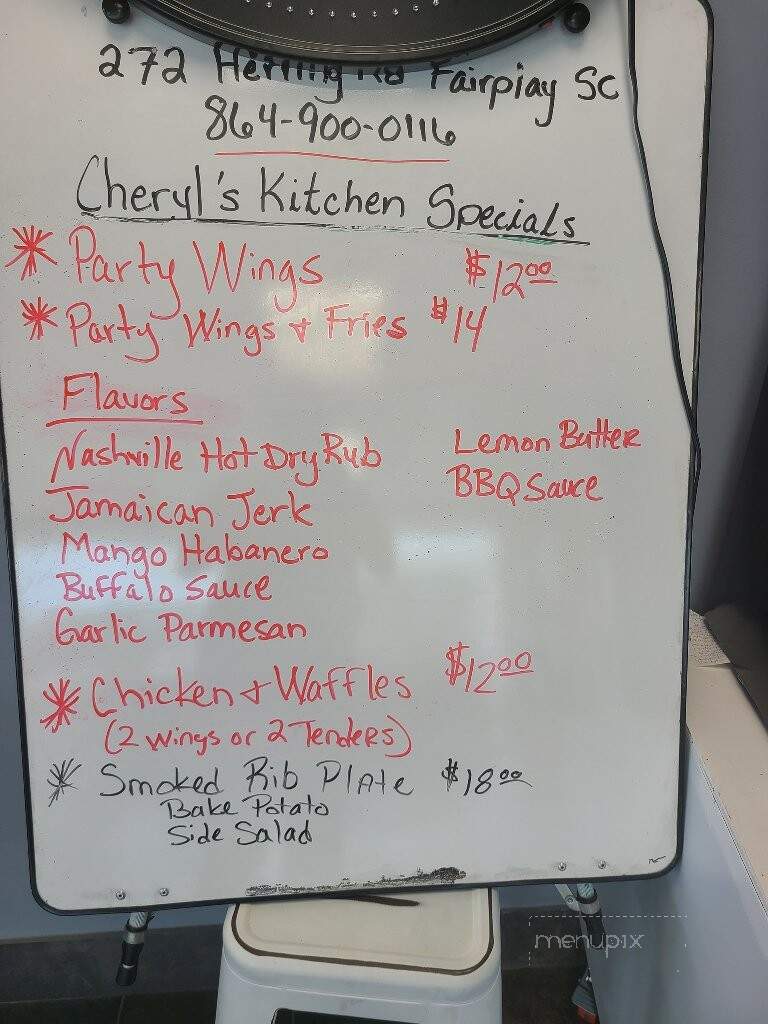 272 Herring Rd Fairplay SC
864-900-0116
Cheryl's Kitchen Specials
* Party Wings $12.00
* Party Wings & Fries $14
Flavors
Nashville Hot Dry Rub Lemon Butter
Jamaican Jerk BBQ Sauce
Mango Habanero
Buffalo Sauce
Garlic Parmesan
* Chicken & Waffles $12.00
(2 Wings or 2 Tenders)
* Smoked Rib Plate $18.00
Bake Potato
Side Salad
menupix